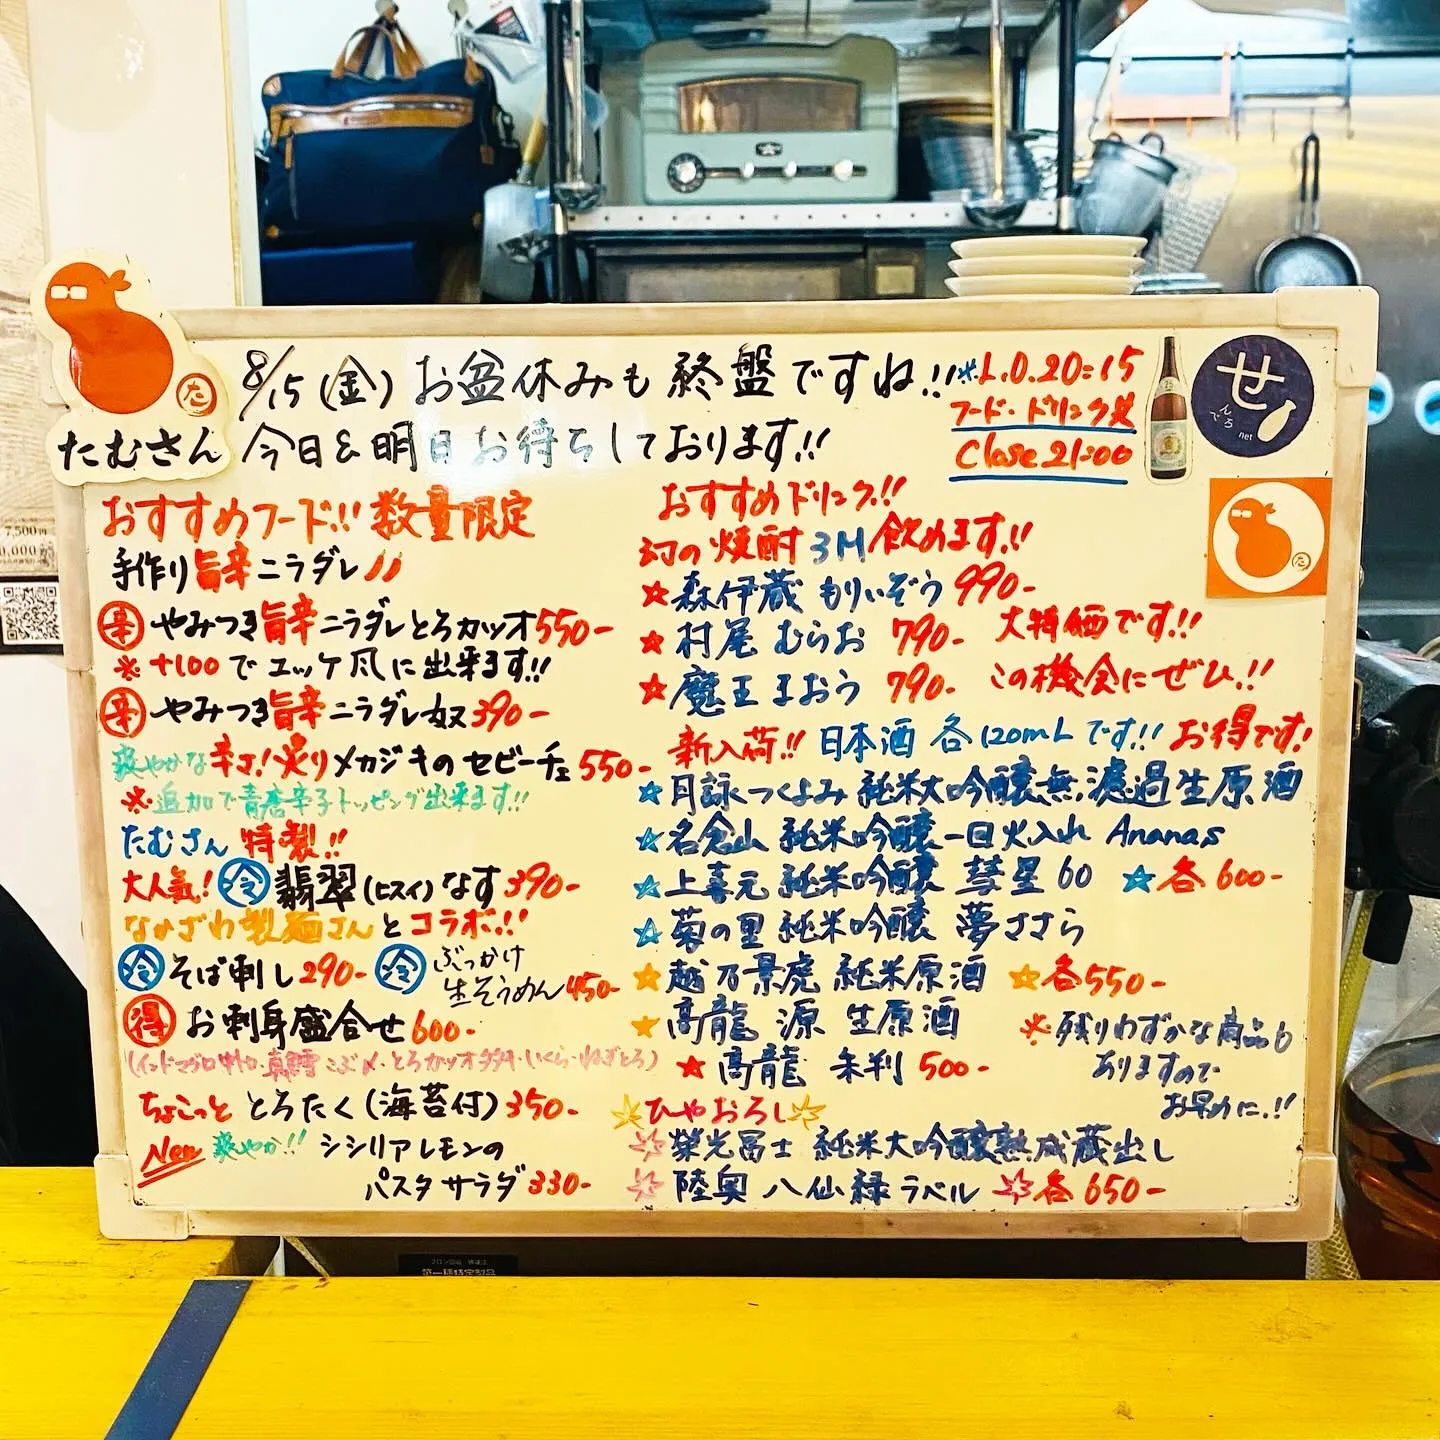 8/15(金)お盆休みも終盤ですね!!
※L.O.20:15
フード・ドリンク共
Close 21:00
今日&明日お待ちしております!!
たむさん
た
せ
んべろ
net
おすすめフード!!数量限定
手作り旨辛ニラダレ
辛 やみつき旨辛ニラダレとろカツオ550-
※+100でユッケ風に出来ます!!
辛 やみつき旨辛ニラダレ奴390-
爽やかな辛さ!炙りメカジキのセビーチェ550-
※追加で青唐辛子トッピング出来ます!!
たむさん特製!!
大人氣!冷 翡翠(ヒスイ)なす390-
なかざわ製麺さんとコラボ!!
冷 そば刺し290- 冷 ぶっかけ
生そうめん450-
得 お刺身盛合せ600-
こぶ〆・とろカツオタタキ・いくら・ねぎとろ)
ちょこっと とろたく(海苔付)350-
New 爽やか!!シシリアレモンの
パスタサラダ330-
おすすめドリンク!!
幻の焼酎3M飲めます!!
☆森伊蔵 もりいぞう990-
☆村尾 むらお 790- 大特価です!!
☆魔王 まおう 790- この機会にぜひ!!
新入荷!! 日本酒 各120mLです!! お得です!
☆月詠 つくよみ 純米大吟醸無濾過生原酒
☆名倉山 純米吟醸一回火入れ Ananas
☆上喜元 純米吟醸 彗星60 ☆各600-
☆菊の里 純米吟醸 夢ささら
☆越乃景虎 純米原酒 ☆各550-
☆高龍 源 生原酒
※残りわずかな商品も
ありますので
お早めに!!
★高龍 朱判 500-
☆ひやおろし☆
☆榮光冨士 純米大吟醸熟成蔵出し
☆陸奥 八仙緑ラベル ☆各650-
7,500円